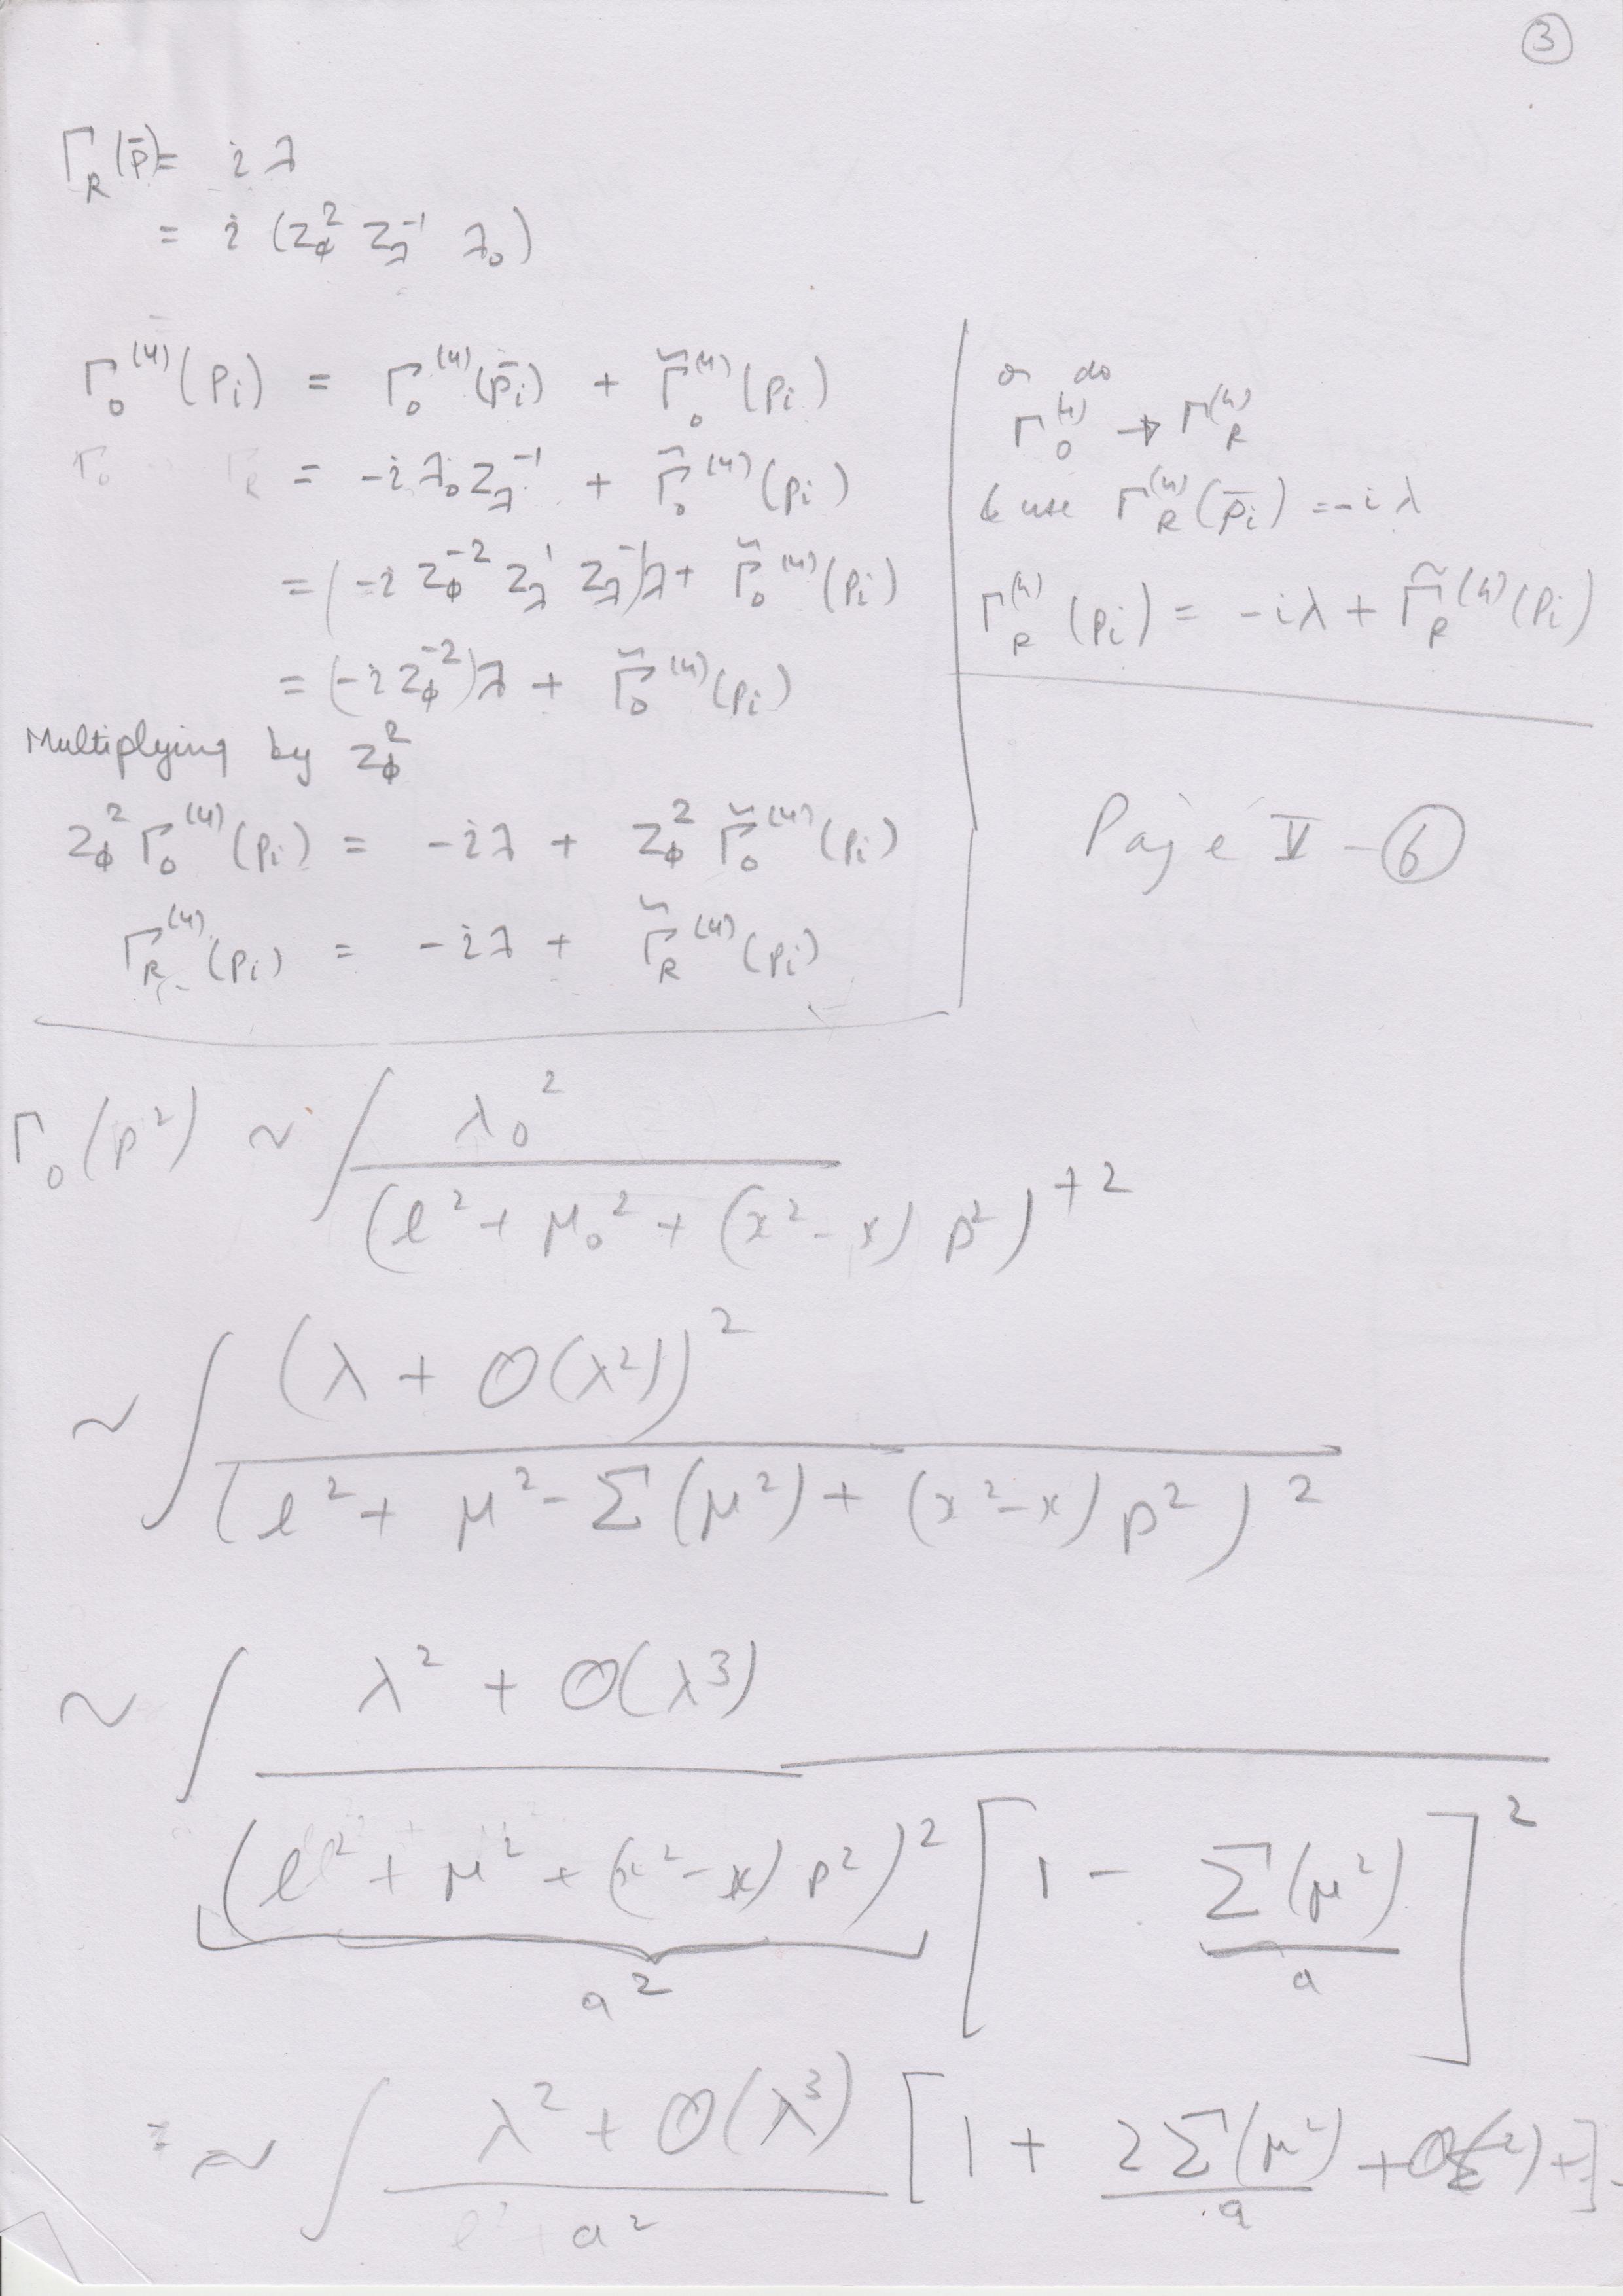 ③
Γ_R(p̄) = iλ
= i (Z_ϕ^2 Z_λ^{-1} λ_0)
Γ_0^{(4)}(p_i) = Γ_0^{(4)}(p̄_i) + Γ̃_0^{(4)}(p_i)
= -iλ_0 Z_λ^{-1} + Γ̃_0^{(4)}(p_i)
= (-i Z_ϕ^{-2} Z_λ^1 Z_λ^{-1})λ + Γ̃_0^{(4)}(p_i)
= (-i Z_ϕ^{-2})λ + Γ̃_0^{(4)}(p_i)
Multiplying by Z_ϕ^2
Z_ϕ^2 Γ_0^{(4)}(p_i) = -iλ + Z_ϕ^2 Γ̃_0^{(4)}(p_i)
Γ_R^{(4)}(p_i) = -iλ + Γ̃_R^{(4)}(p_i)
or do
Γ_0^{(4)} → Γ_R^{(4)}
& use Γ_R^{(4)}(p̄_i) = -iλ
Γ_R^{(4)}(p_i) = -iλ + Γ̃_R^{(4)}(p_i)
Page V - ⑥
Γ_0(p^2) ~ ∫ λ_0^2 / (l^2 + μ_0^2 + (x^2 - x) p^2)^{+2}
~ ∫ (λ + O(λ^2))^2 / (l^2 + μ^2 - Σ(μ^2) + (x^2 - x) p^2)^2
~ ∫ λ^2 + O(λ^3) / (l^2 + μ^2 + (x^2 - x) p^2)^2 [1 - Σ(μ^2)/a]^2
a^2
~ ∫ λ^2 + O(λ^3) / a^2 [1 + 2Σ(μ^2)/a + O(Σ^2) + ]